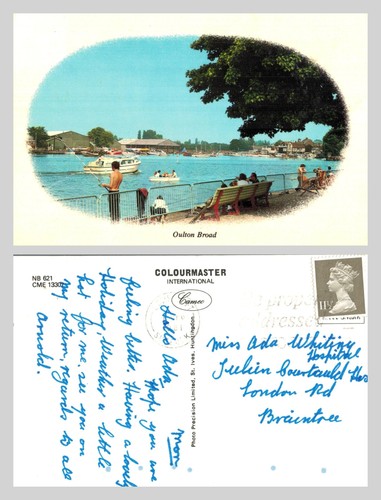 Oulton Broad
NB 621
CME 1330
COLOURMASTER
INTERNATIONAL
Cameo
Photo Precision Limited, St. Ives, Huntingdon.
Mon
Hello Ada,
Hope you are
feeling better. Having a lovely
Holiday, Weather a little
hot for me. see you on
my return, regards to all
Arnold.
Miss Ada Whiting
Hospital
Julien Courtauld Hos
London Rd
Braintree